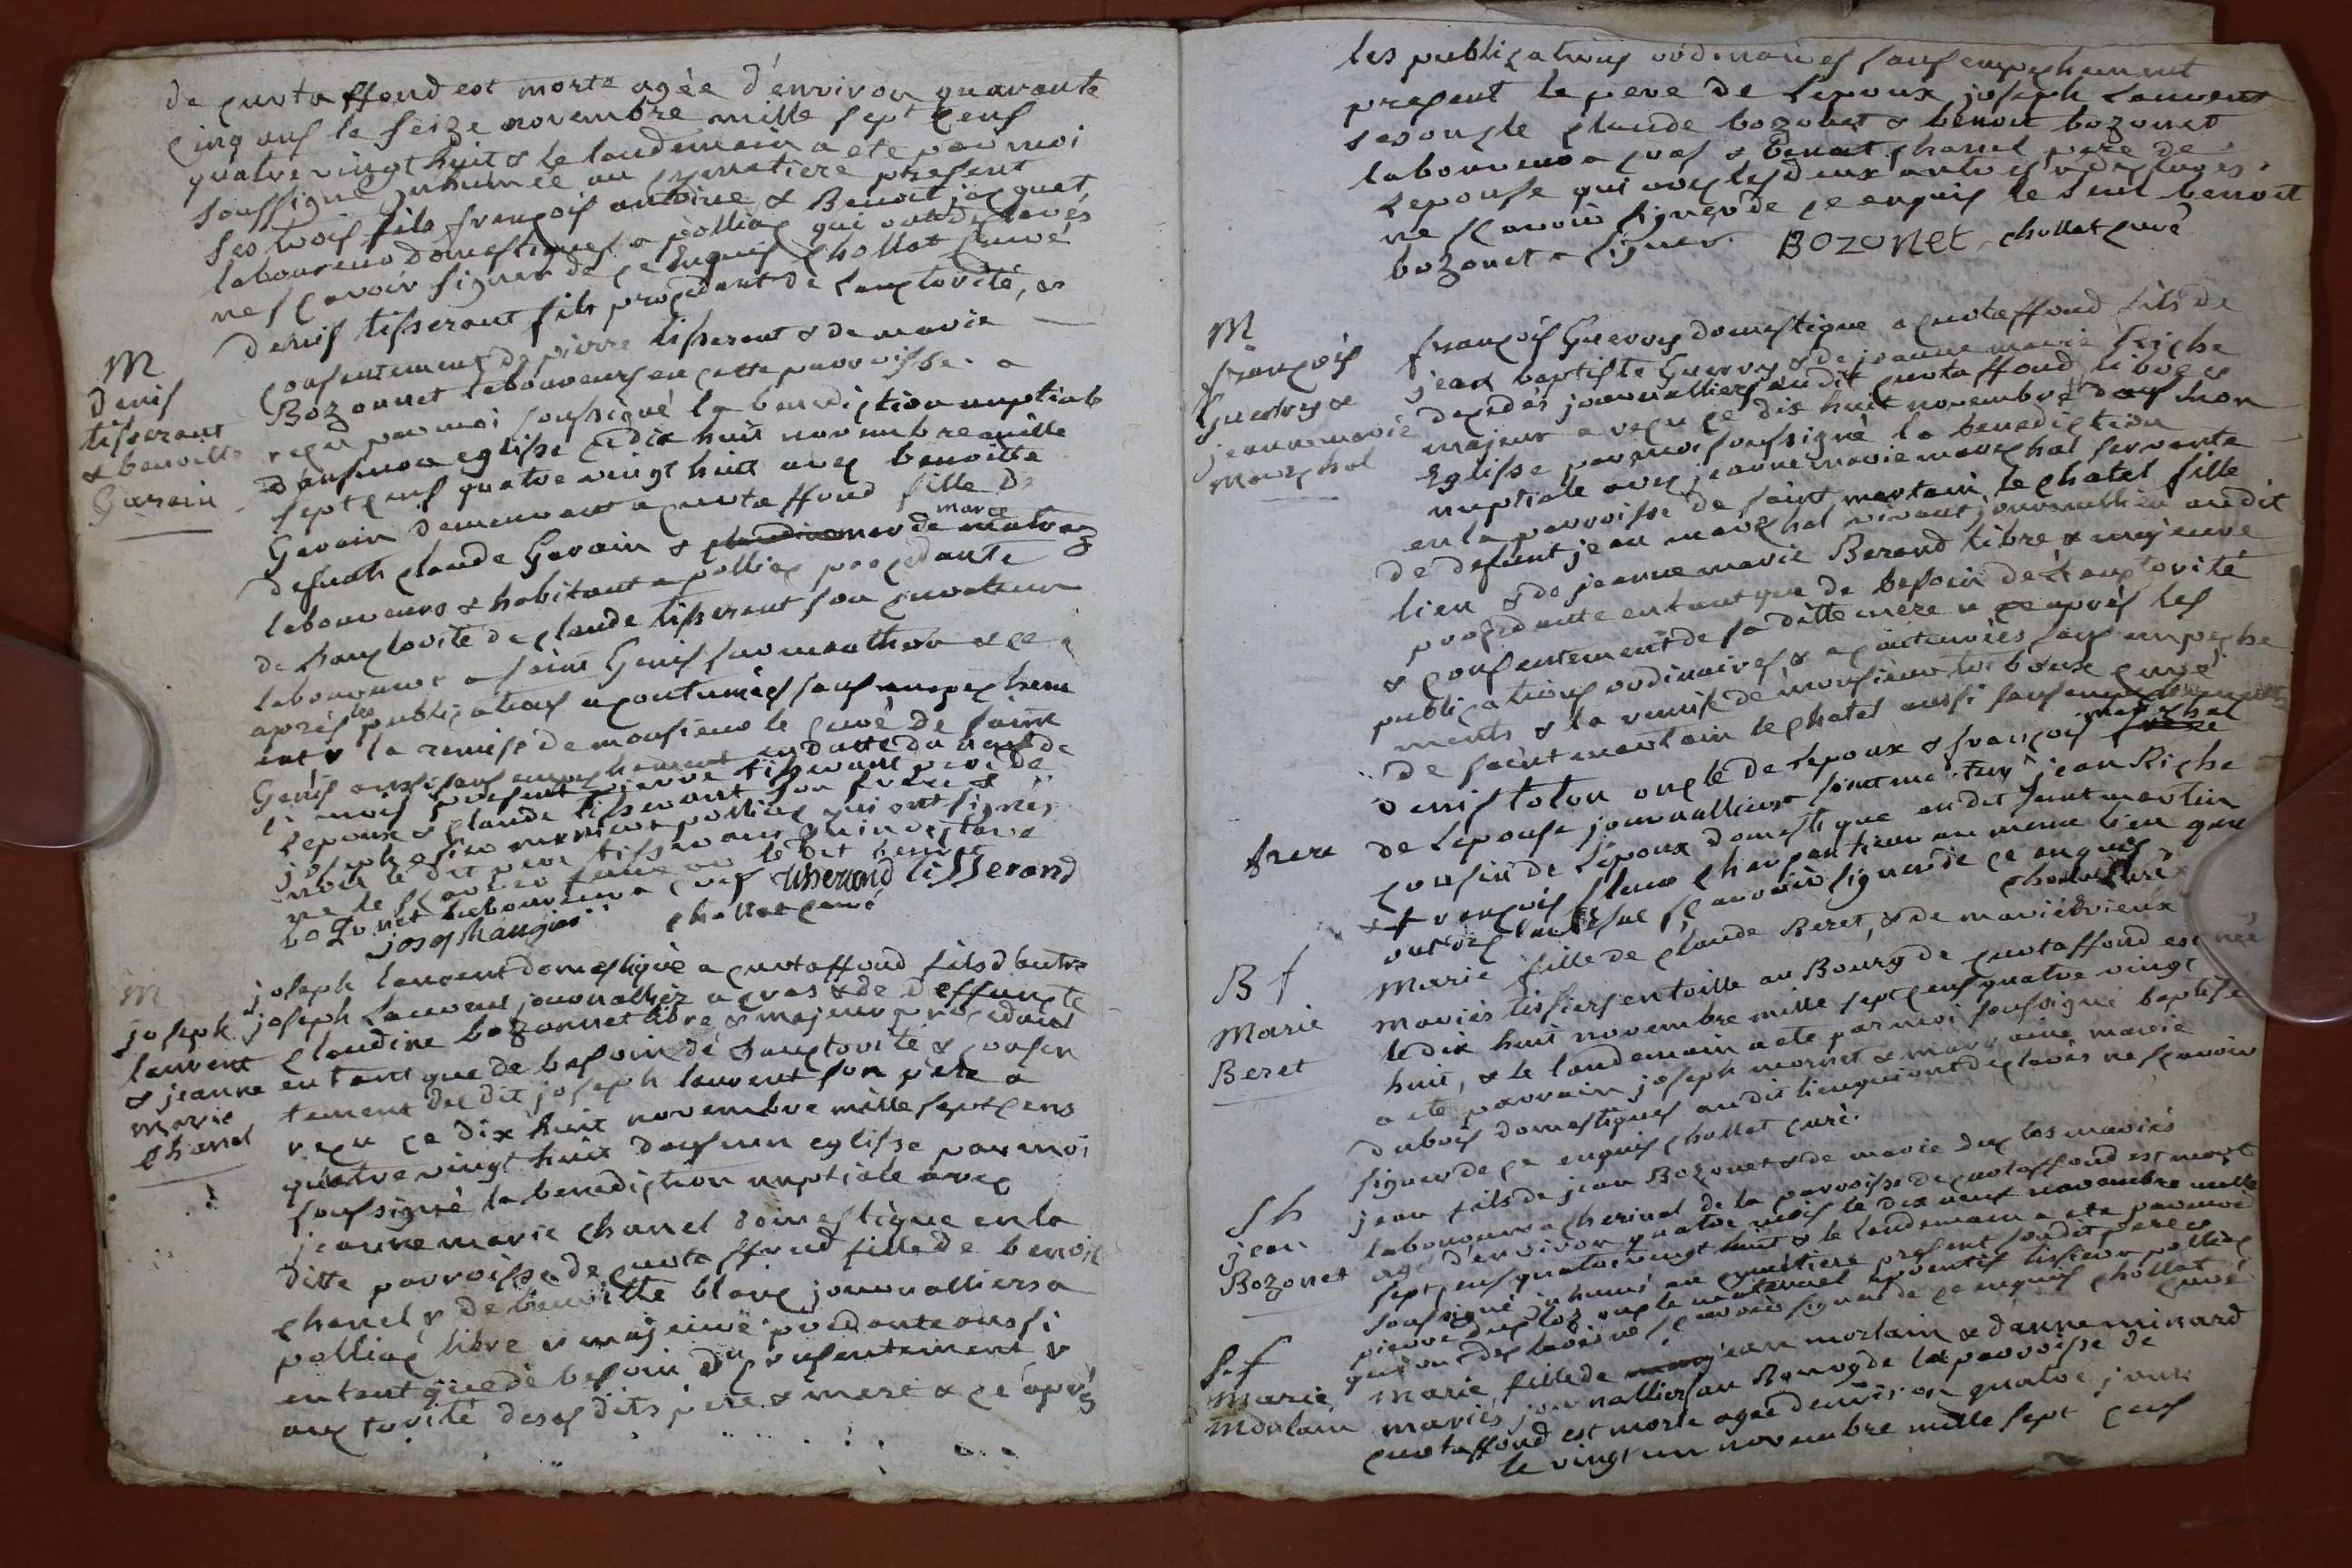 de curtaffond est morte agée d'environ quarante
cinq ans le seize novembre mille sept cens
quatre vingt huit & le landemain a ete par moi
soussigné inhumée au cymetiere present
ses trois fils françois antoine & Benoit jacquet
laboureurs domestiques a polliac qui ont declarés
ne sçavoir signer de ce enquis chollat curé
M
denis
tisserant
& benoitte
Garain
denis tisserant fils procedant de lauctorité, &
consentement de pierre tisserant & de marie
Bozonnet laboureurs en cette parroisse a
reçu par moi soussigné la benediction nuptiale
dans mon eglisse ce dix huit novembre mille
sept cens quatre vingt huit avec benoitte
Garain demeurant a curtaffond fille de
defunts claude Garain & marie
laboureurs & habitant a polliac procedante
de lauctorité de claude tisserant son curateur
laboureur a saint Genis sur menthon & ce
après les publications acoutumées sans empechem
ent & la remise de monsieur le curé de saint
Genis aussi sans empechement en datte du neuf de
ce mois present pierre tisserant pere de
lepoux & claude tisserant son frere &
joseph polliac qui ont signés
non le dit pere tisserant
ne le sçavoir faire le dit benoit
bozonet laboureur a cras tisserand tisserand
chollat curé
M
joseph
laurent
& jeanne
marie
chanel
joseph laurent domestique a curtaffond fils d'autre
joseph laurent journallier a cras & de deffuncte
claudine bozonnet libre & majeur procedant
en tant que de besoin de lauctorité & consen
tement du dit joseph laurent son pere a
reçu ce dix huit novembre mille sept cens
quatre vingt huit dans mon eglisse par moi
soussigné la benediction nuptiale avec
jeanne marie chanel domestique en la
ditte parroisse de curtaffond fille de benoit
chanel & de benoitte blanc journalliers a
polliac libre & majeure procedante aussi
en tant que de besoin du consentement &
auctorité deses dits pere & mere & ce après
les publications ordinaires sans empechement
present le pere de lepoux joseph laurent
ses oncle claude bozonet & benoit bozonet
laboureurs a cras & benoit chanel pere de
lepouse qui avec les deux autres declarés
ne sçavoir signer de ce enquis le seul benoit
bozonet a signer. BOZONET chollat curé
M
françois
Guerry &
jeanne marie
marechal
françois Guerry domestique a curtaffond fils de
jean baptiste Guerry & de jeanne marie Riche
decedés journalliers audit curtaffond libre &
majeur a reçu ce dix huit novembre dans mon
Eglisse par moi soussigné la benediction
nuptiale avec jeanne marie marechal servante
en la parroisse de saint martain le chatel fille
de defunt jean marechal vivant journallier audit
lieu & de jeanne marie Berond libre & majeure
procedante en tant que de besoin de lauctorité
& consentement de sa ditte mere & ce après les
publications ordinaires & acoutumées sans empeche
ments & la remise de monsieur curé
de saint martain le chatel aussi sans
denis tolon oncle de lepoux & françois marechal
frere de lepouse journalliers saint martin jean Riche
cousin de lepoux domestique audit saint martin
& françois charpentier au meme lieu qui
ont declarés ne sçavoir signer de ce enquis
chollat curé
B f
Marie
Beret
Marie fille de claude Beret, & de marie vieux
mariés tissiers en toille au Bourg de curtaffond est née
le dix huit novembre mille sept cens quatre vingt
huit, & le landemain a ete par moi soussigné baptisée
a ete parrain joseph mornet & marraine marie
dubois domestiques audit lieu qui ont declarés ne sçavoir
signer de ce enquis chollat curé.
S h
jean
Bozonet
jean fils de jean Bozonet & de marie duclos mariés
laboureurs a cherinal de la parroisse de curtaffond est mort
agé d'environ quatre mois le dix neuf novembre mille
sept cens quatre vingt huit & le landemain a ete par moi
soussigné inhumé au cymetiere present son dit pere &
pierre duclos oncle maternel aprentif tissier a polliac
qui ont declarés ne sçavoir signer de ce enquis chollat
curé
S f
Marie
Morlain
Marie fille de jean morlain & d'anne minard
mariés journalliers au Bourg de la parroisse de
curtaffond est morte agée denviron quatre jours
le vingt un novembre mille sept cens